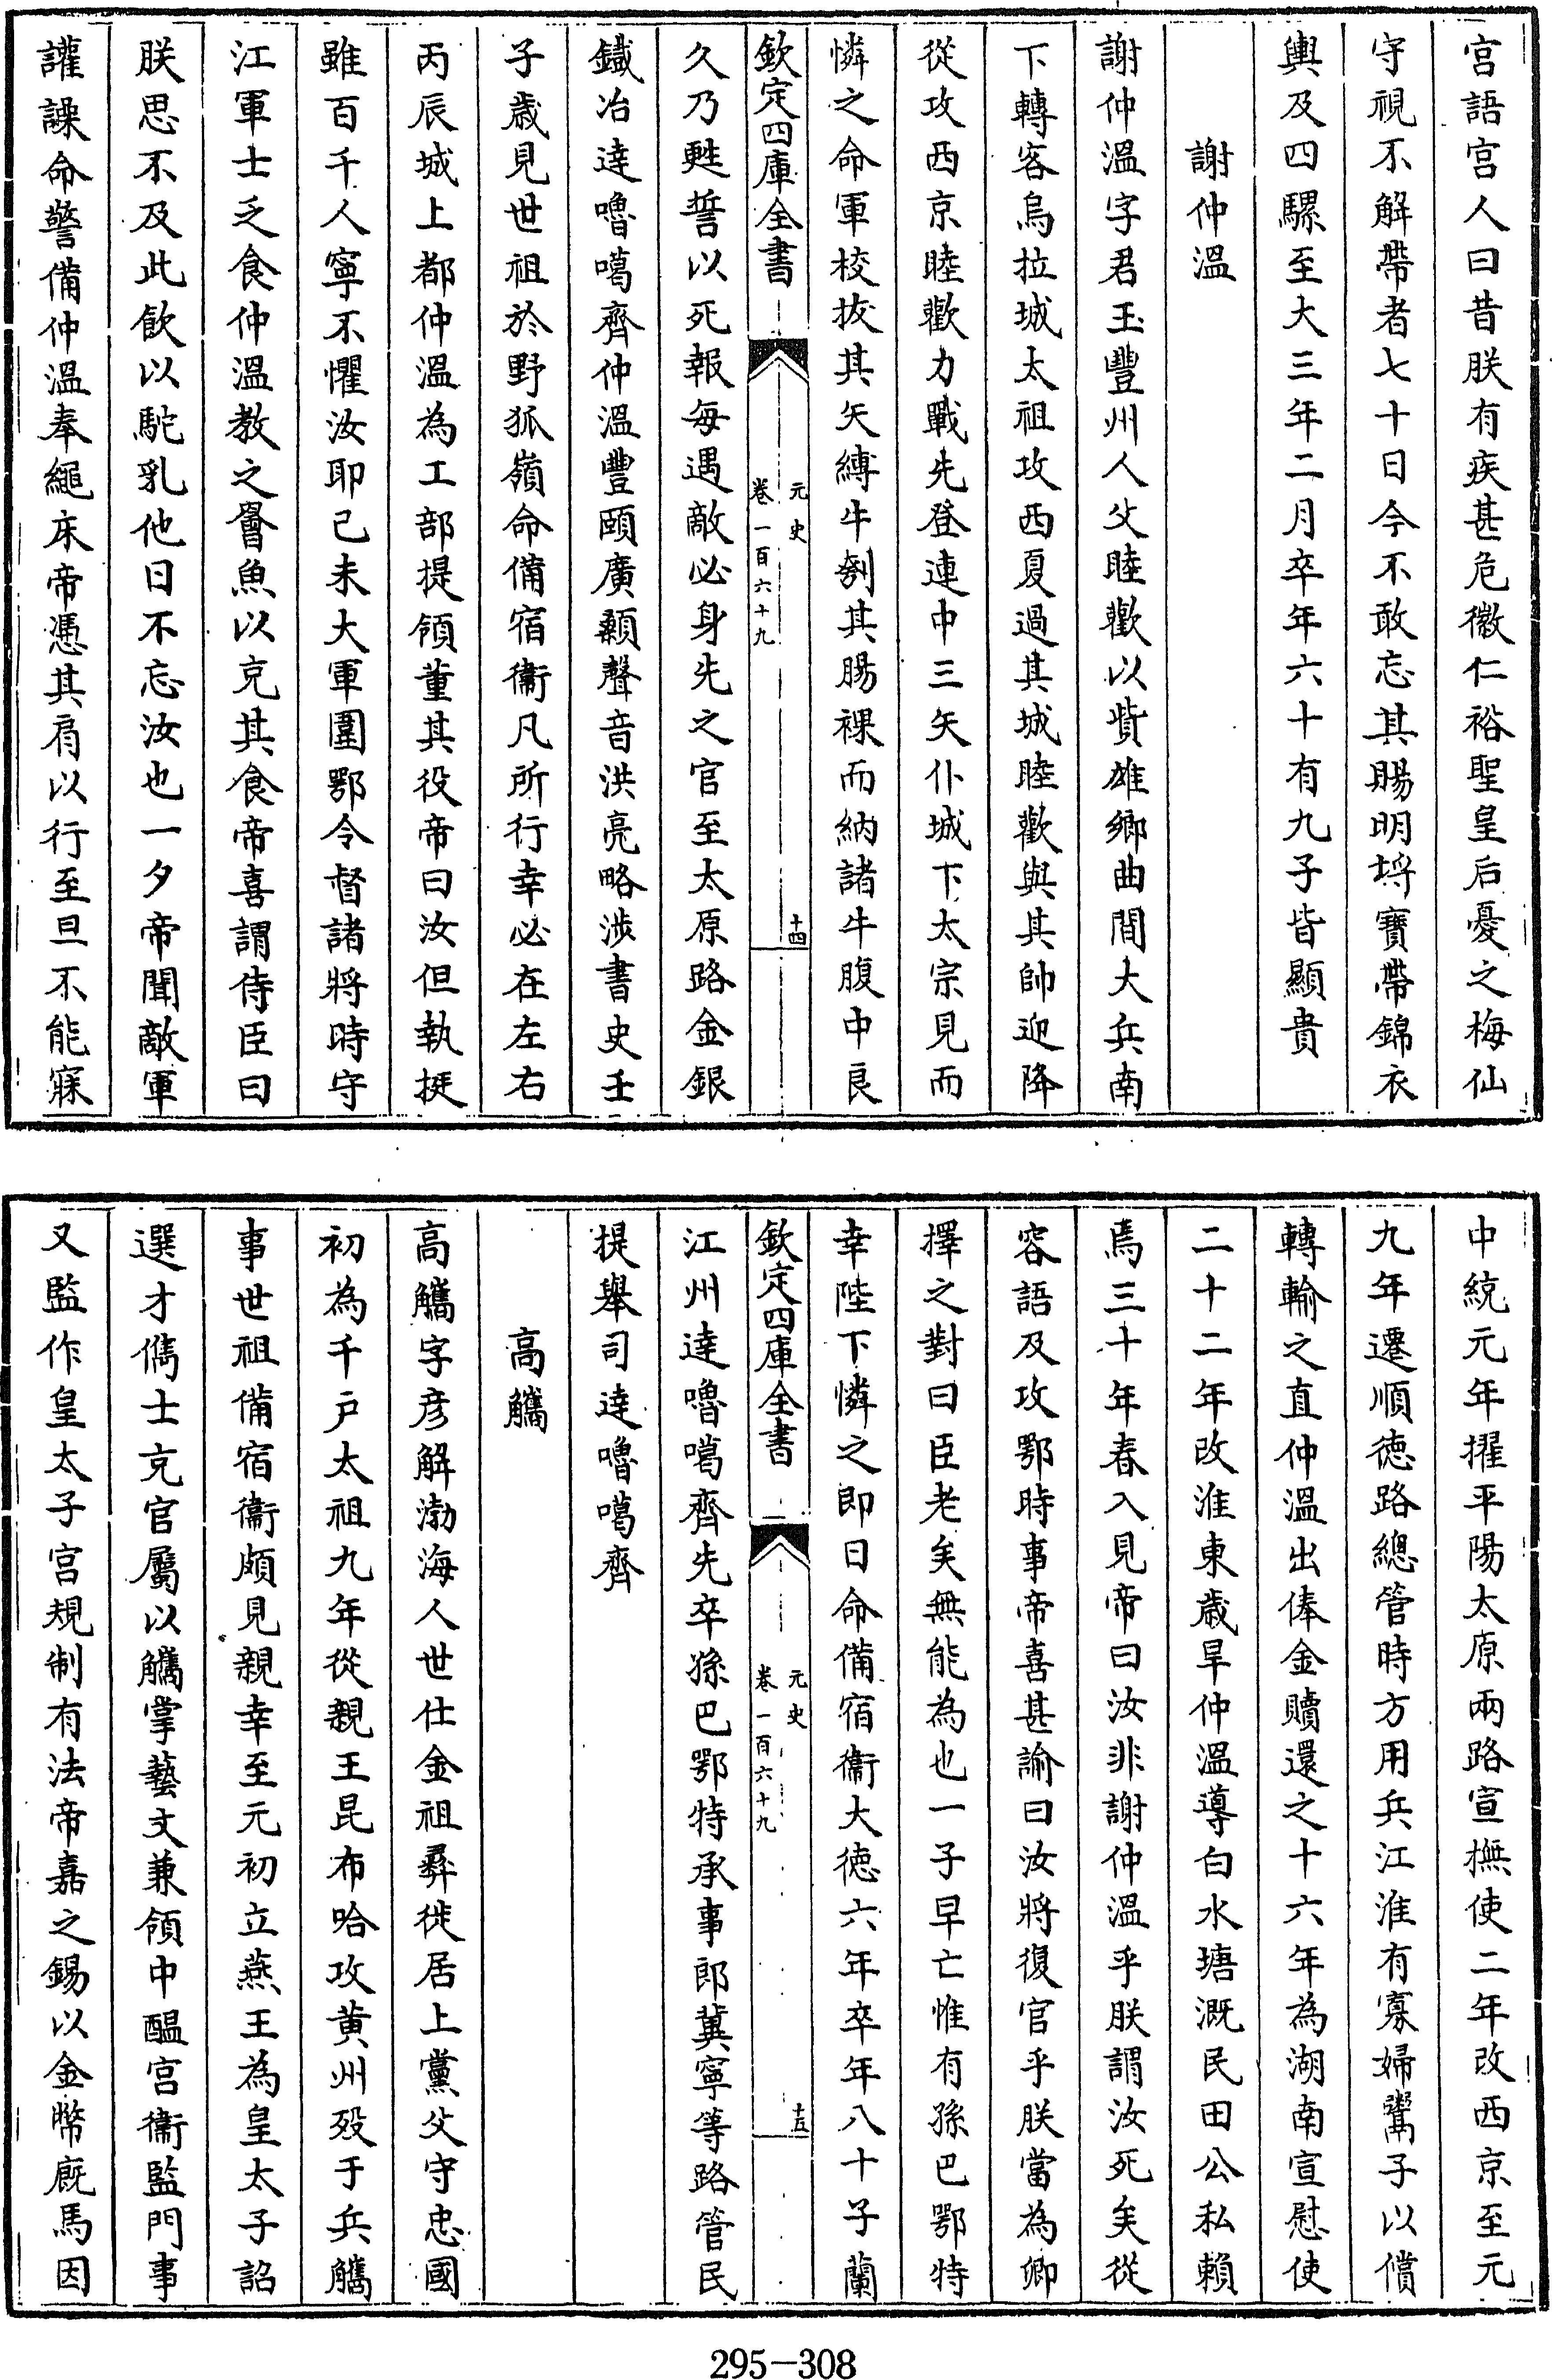 宫語宫人曰昔朕有疾甚危徽仁裕聖皇后憂之梅仙
守視不解帶者七十日今不敢忘其賜明埒寶帶錦衣
輿及四騾至大三年二月卒年六十有九子皆顯貴
謝仲溫
謝仲溫字君玉豐州人父睦歡以貲雄鄉曲間大兵南
下轉客烏拉城太祖攻西夏過其城睦歡與其帥迎降
從攻西京睦歡力戰先登連中三矢仆城下太宗見而
憐之命軍校拔其矢縛牛刳其腸裸而納諸牛腹中良
欽定四庫全書
元史
卷一百六十九
十四
久乃甦誓以死報每遇敵必身先之官至太原路金銀
鐵冶達嚕噶齊仲溫豐頤廣顙聲音洪亮略涉書史壬
子歲見世祖於野狐嶺命備宿衞凡所行幸必在左右
丙辰城上都仲溫為工部提領董其役帝曰汝但執挺
雖百千人寧不懼汝耶己未大軍圍鄂令督諸將時守
江軍士乏食仲溫教之罾魚以充其食帝喜謂侍臣曰
朕思不及此飲以駝乳他日不忘汝也一夕帝聞敵軍
讙譟命警備仲溫奉繩床帝憑其肩以行至旦不能寐
中統元年擢平陽太原兩路宣撫使二年改西京至元
九年遷順德路總管時方用兵江淮有寡婦鬻子以償
轉輸之直仲溫出俸金贖還之十六年為湖南宣慰使
二十二年改淮東歲旱仲溫導白水塘溉民田公私賴
焉三十年春入見帝曰汝非謝仲溫乎朕謂汝死矣從
容語及攻鄂時事帝喜甚諭曰汝將復官乎朕當為卿
擇之對曰臣老矣無能為也一子早亡惟有孫巴鄂特
幸陛下憐之即日命備宿衞大德六年卒年八十子蘭
欽定四庫全書
元史
卷一百六十九
十五
江州達嚕噶齊先卒孫巴鄂特承事郎冀寧等路管民
提舉司達嚕噶齊
高觿
高觿字彥解渤海人世仕金祖彝徙居上黨父守忠國
初為千戶太祖九年從親王昆布哈攻黃州殁于兵觿
事世祖備宿衞頗見親幸至元初立燕王為皇太子詔
選才儁士充官屬以觿掌藝文兼領中醞宮衞監門事
又監作皇太子宮規制有法帝嘉之錫以金幣廐馬因
295-308